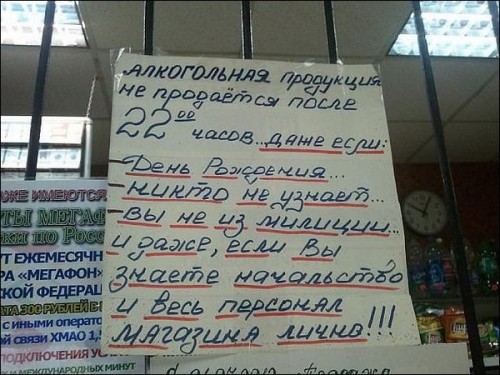 АЛКОГОЛЬНАЯ продукция
не продаётся после
22⁰⁰ часов... даже если:
– День Рождения...
– никто не узнает...
– вы не из милиции...
и даже, если Вы
знаете начальство
и весь персонал
магазина лично!!!
ЖЕ ИМЕЮТСЯ
ТЫ МЕГАФ
КИ по Рос
УТ ЕЖЕМЕСЯЧН
РА «МЕГАФОН»
СКОЙ ФЕДЕРАЦ
АТА 300 РУБЛЕЙ В
с иными операто
Й СВЯЗИ ХМАО 1,
ПОДКЛЮЧЕНИЯ УС
И МЕЖДУНАРОДНЫХ МИНУТ